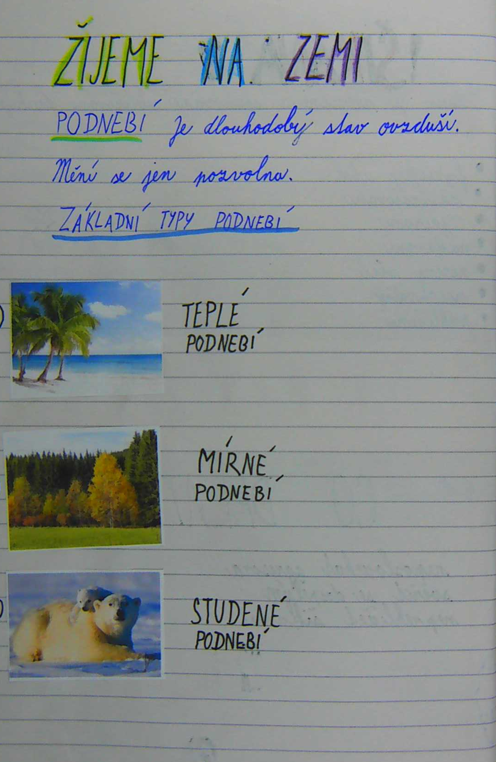 ŽIJEME NA ZEMI
PODNEBÍ je dlouhodobý stav ovzduší.
Mění se jen pozvolna.
ZÁKLADNÍ TYPY PODNEBÍ
TEPLÉ
PODNEBÍ
MÍRNÉ
PODNEBÍ
STUDENÉ
PODNEBÍ